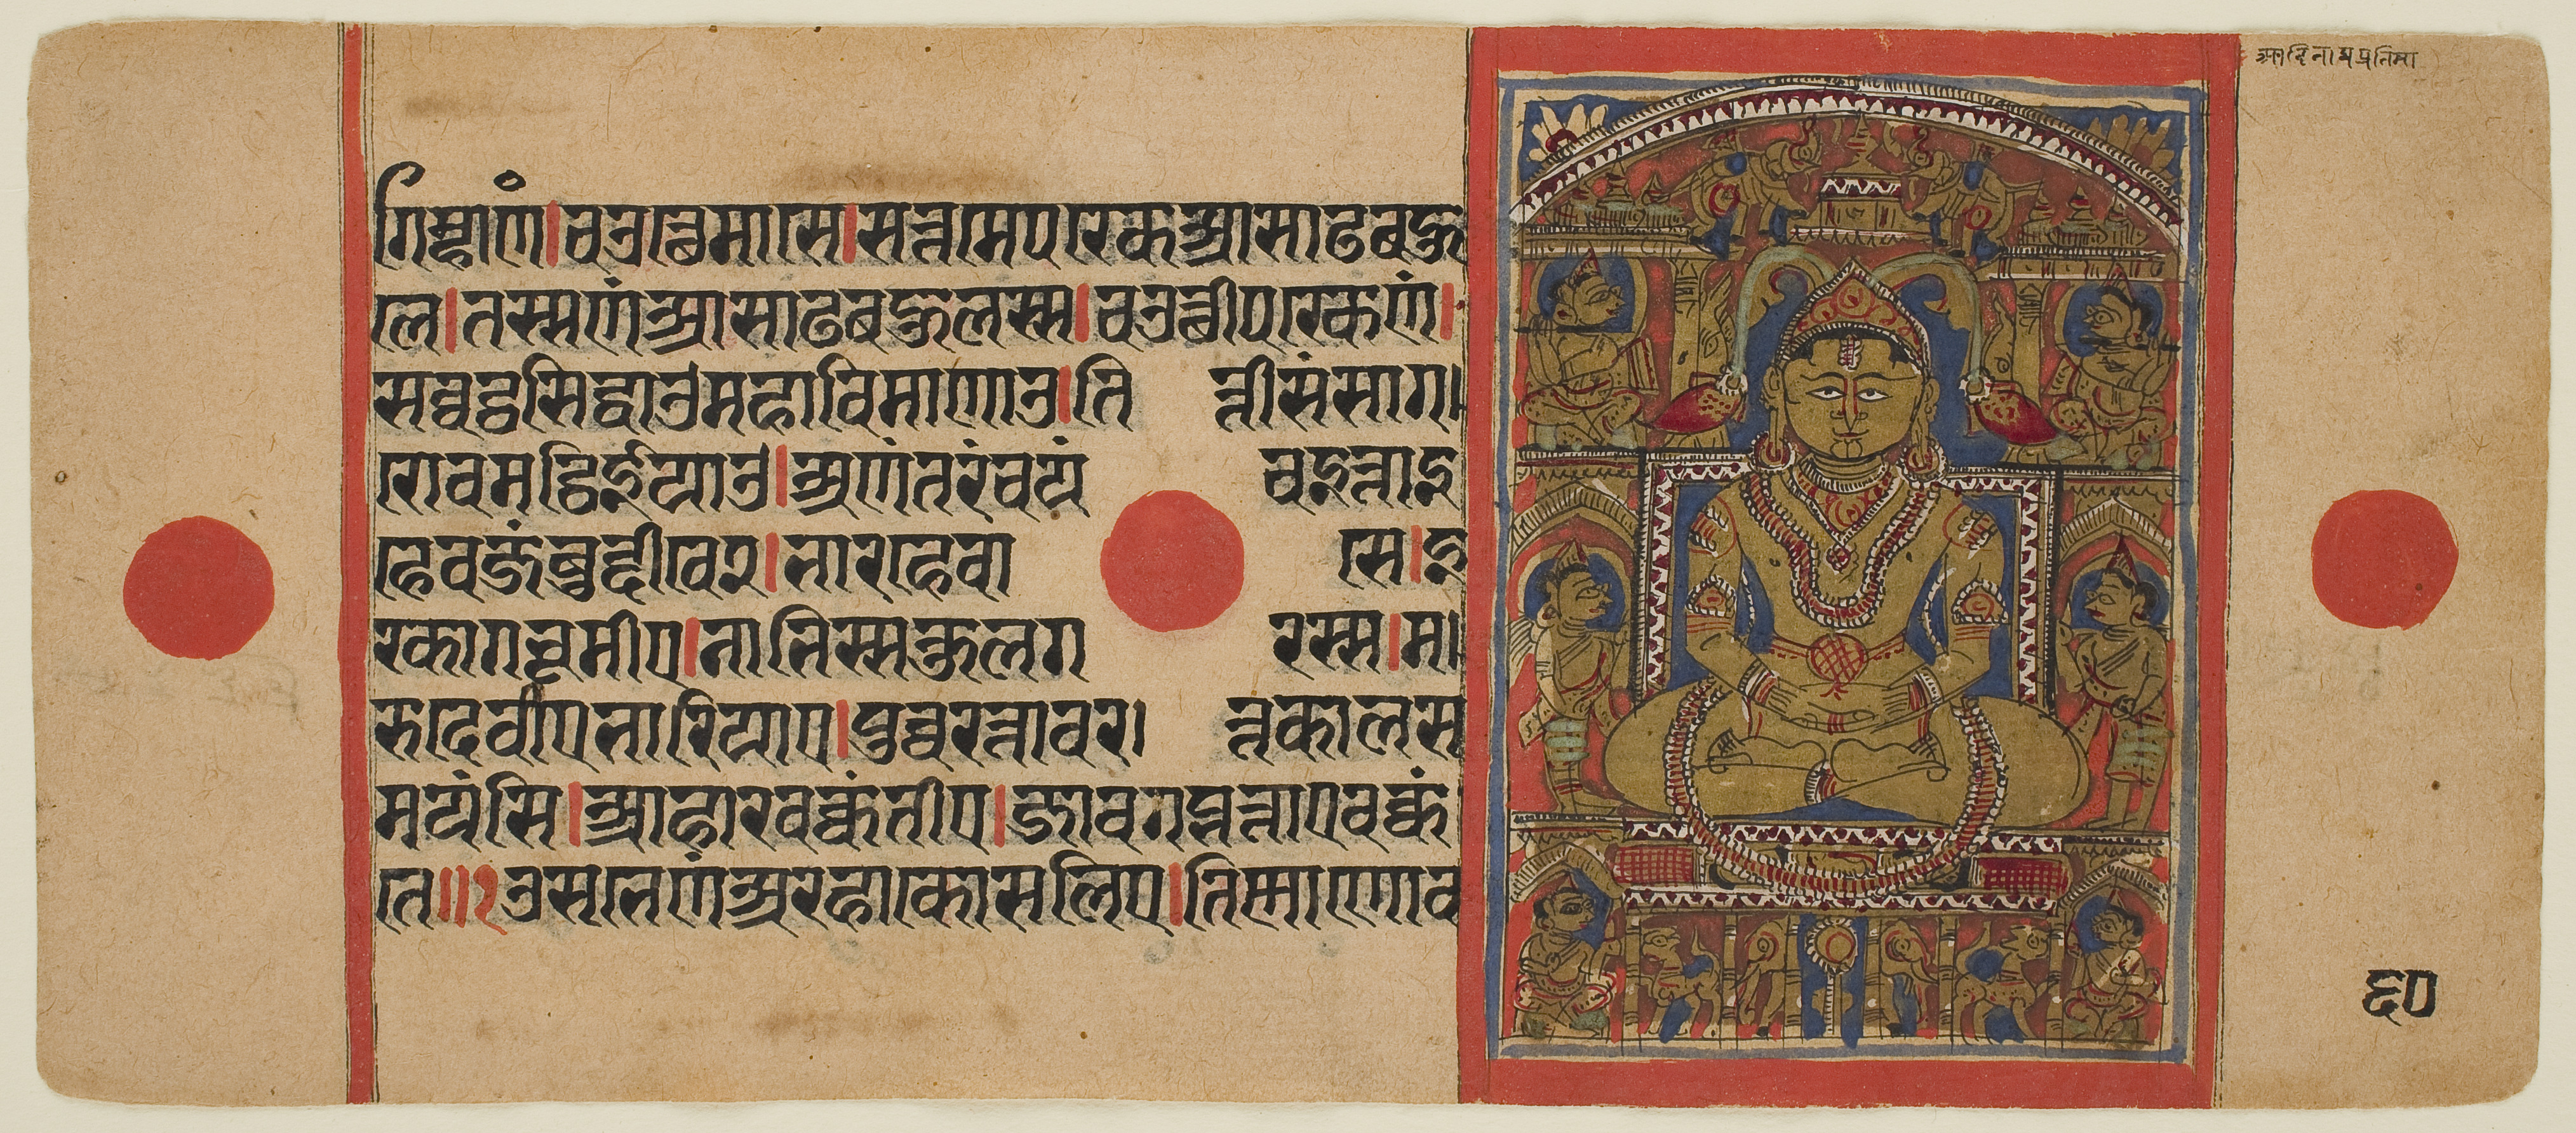 गिम्हाणं।चउत्थेमासे।सत्तमेपक्खेआसाढबहु
ले।तस्सणंआसाढबहुलस्स।चउत्थीपक्खेणं।
सव्वट्ठसिद्धाउमहाविमाणाउ।तित्तीसंसाग
रोवमट्ठिईयाउ।अणंतरंचयंचइत्ताइ
हेवजंबुद्दीवे२।भारहेवासे।इ
क्खागभूमीए।नाभिस्सकुलगरस्स।म
रुदेवीएभारियाए।पुव्वरत्तावरत्तकालस
मयंसि।आहारवक्कंतीए।जावगब्भत्ताएवक्कं
ते॥१उसभेणंअरहाकोसलिए।तिन्नाणोव
आदिनाथप्रतिमा
६०